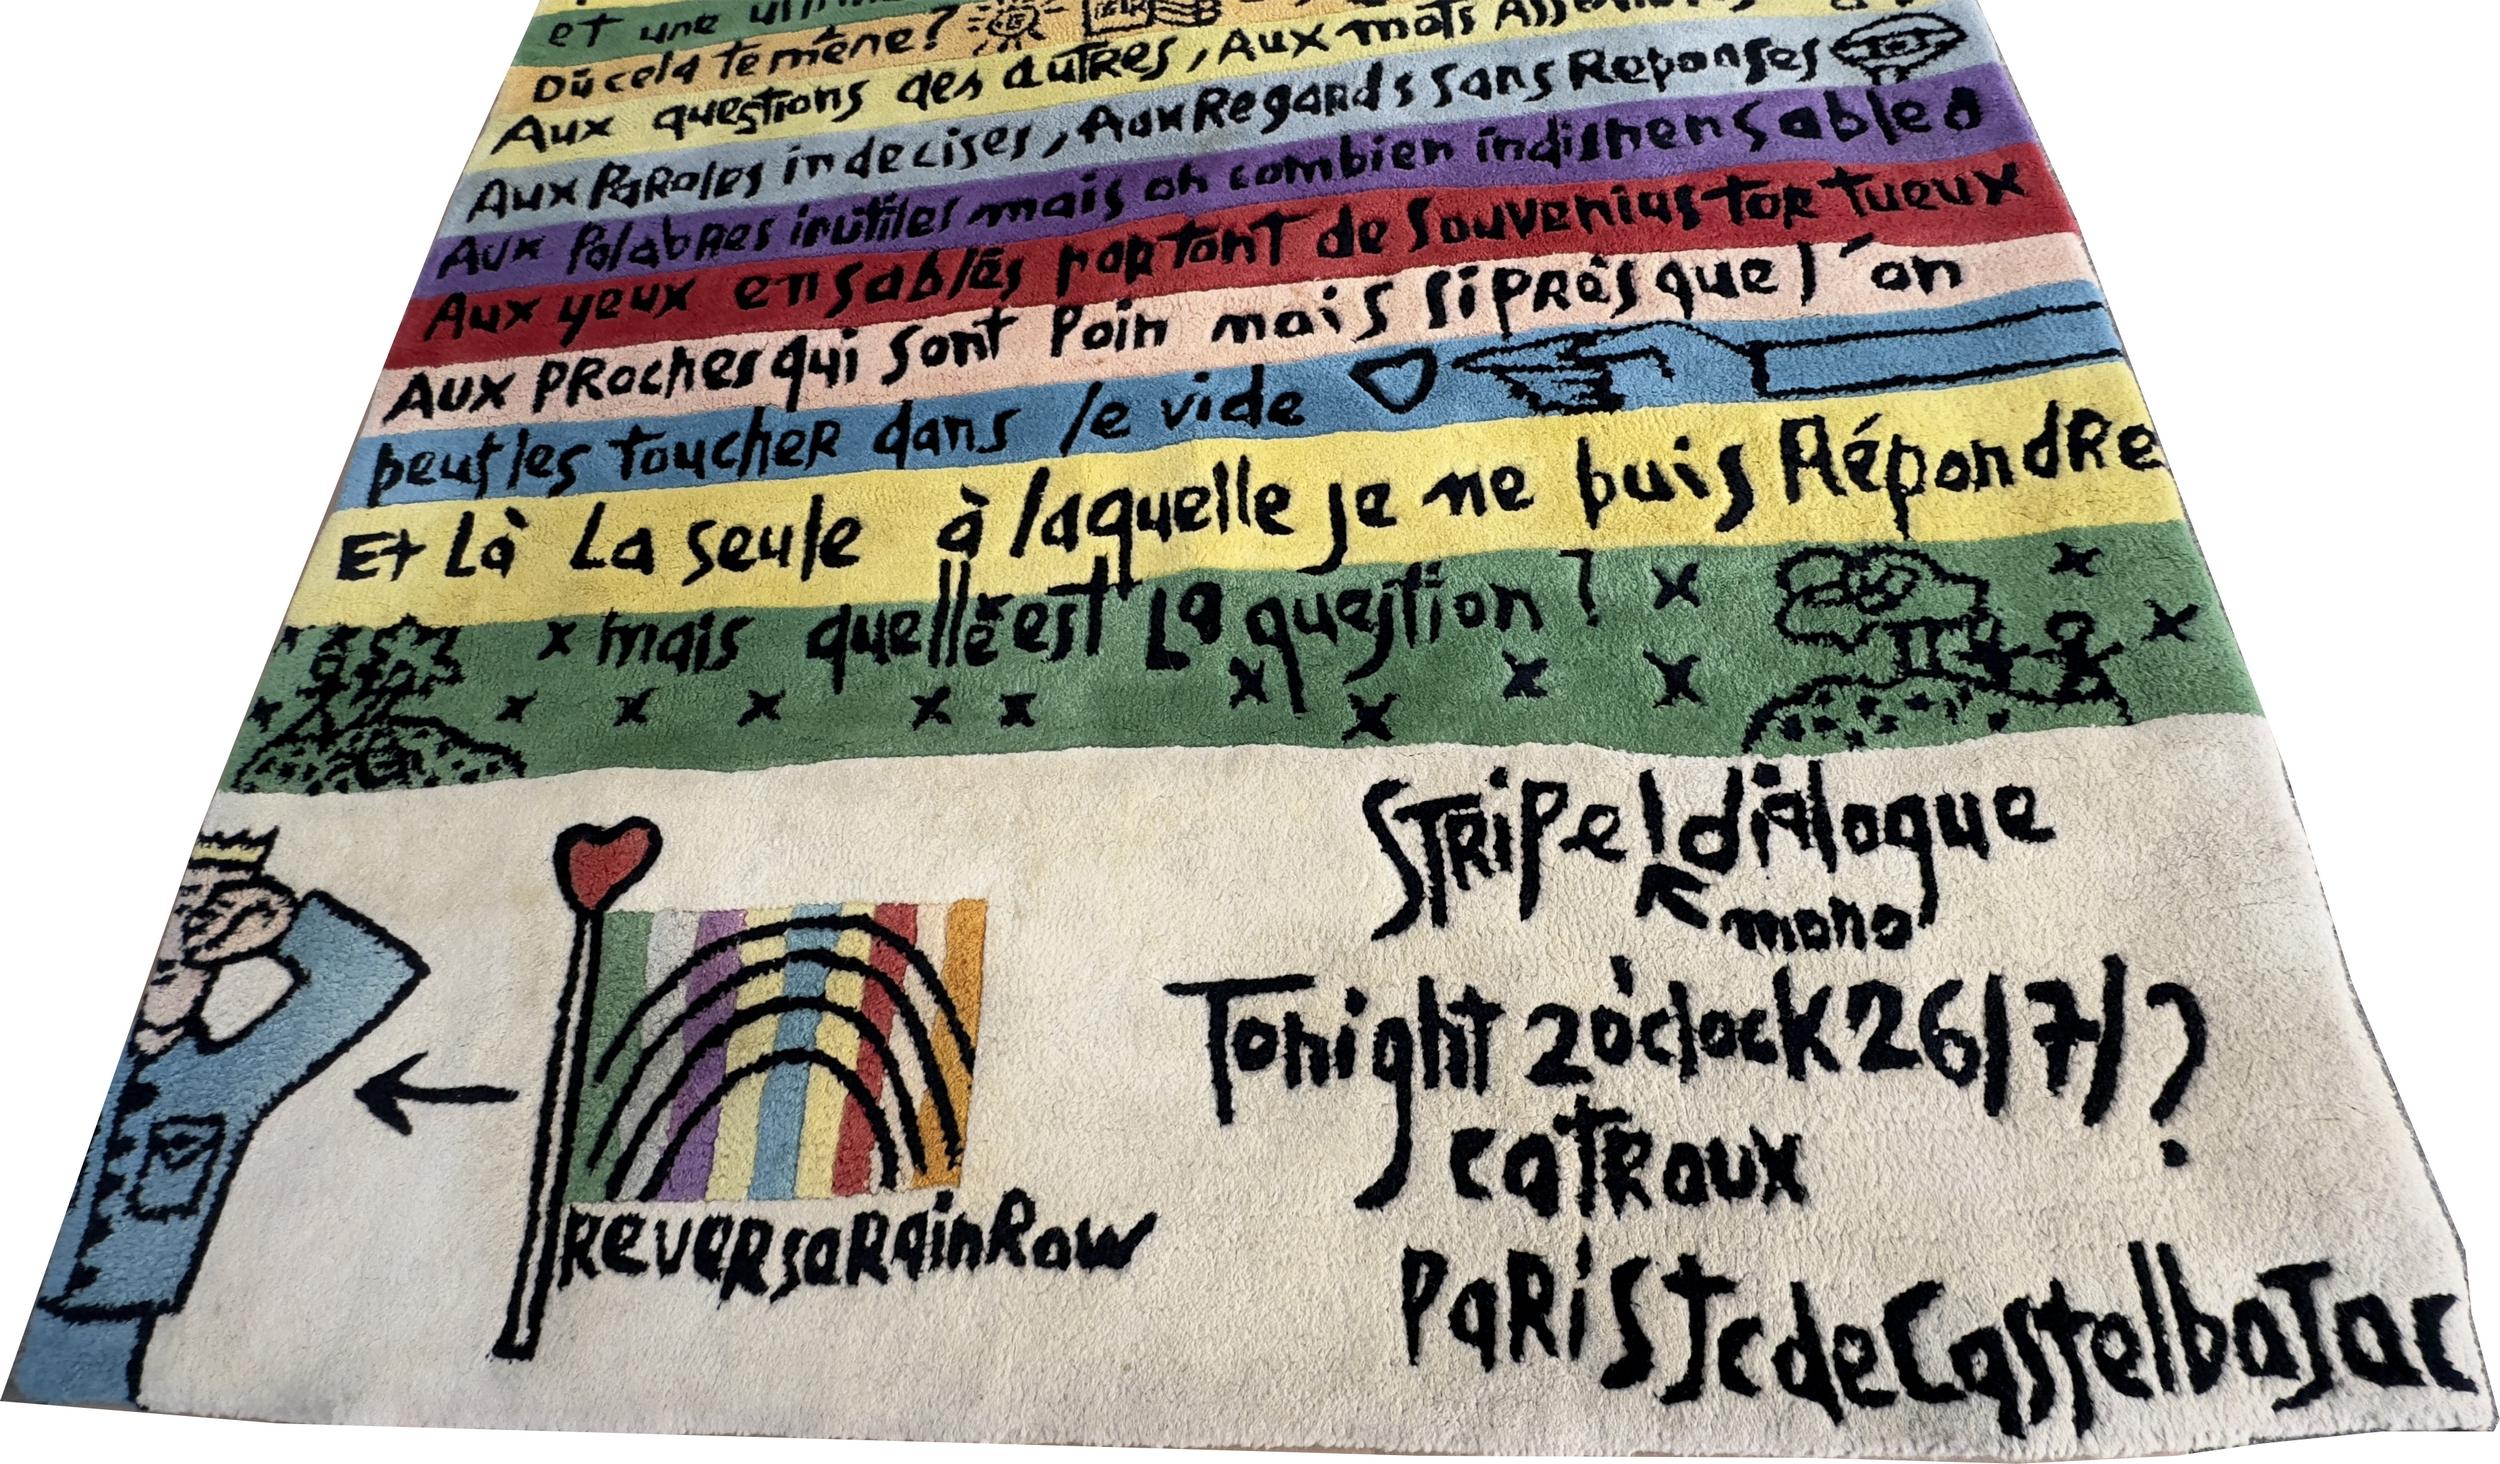 et une
Où cela te mène?
Aux questions des autres, Aux mots
Aux Paroles indecises, Aux Regards sans Reponses
Aux Palabres inutiles mais oh combien indispensables
Aux yeux ensablés partant de souvenirs tortueux
Aux PRoches qui sont Poin mais si PRès que l'on
peut les toucher dans le vide
Et Là La seule à laquelle je ne puis Répondre
x mais quelle est La question?
STRiPe! dialogue
mono
Tonight 2 o'clock 26/7/?
catRaux
ReveRsaRainRow
PaRiS Jc de CastelbaJac